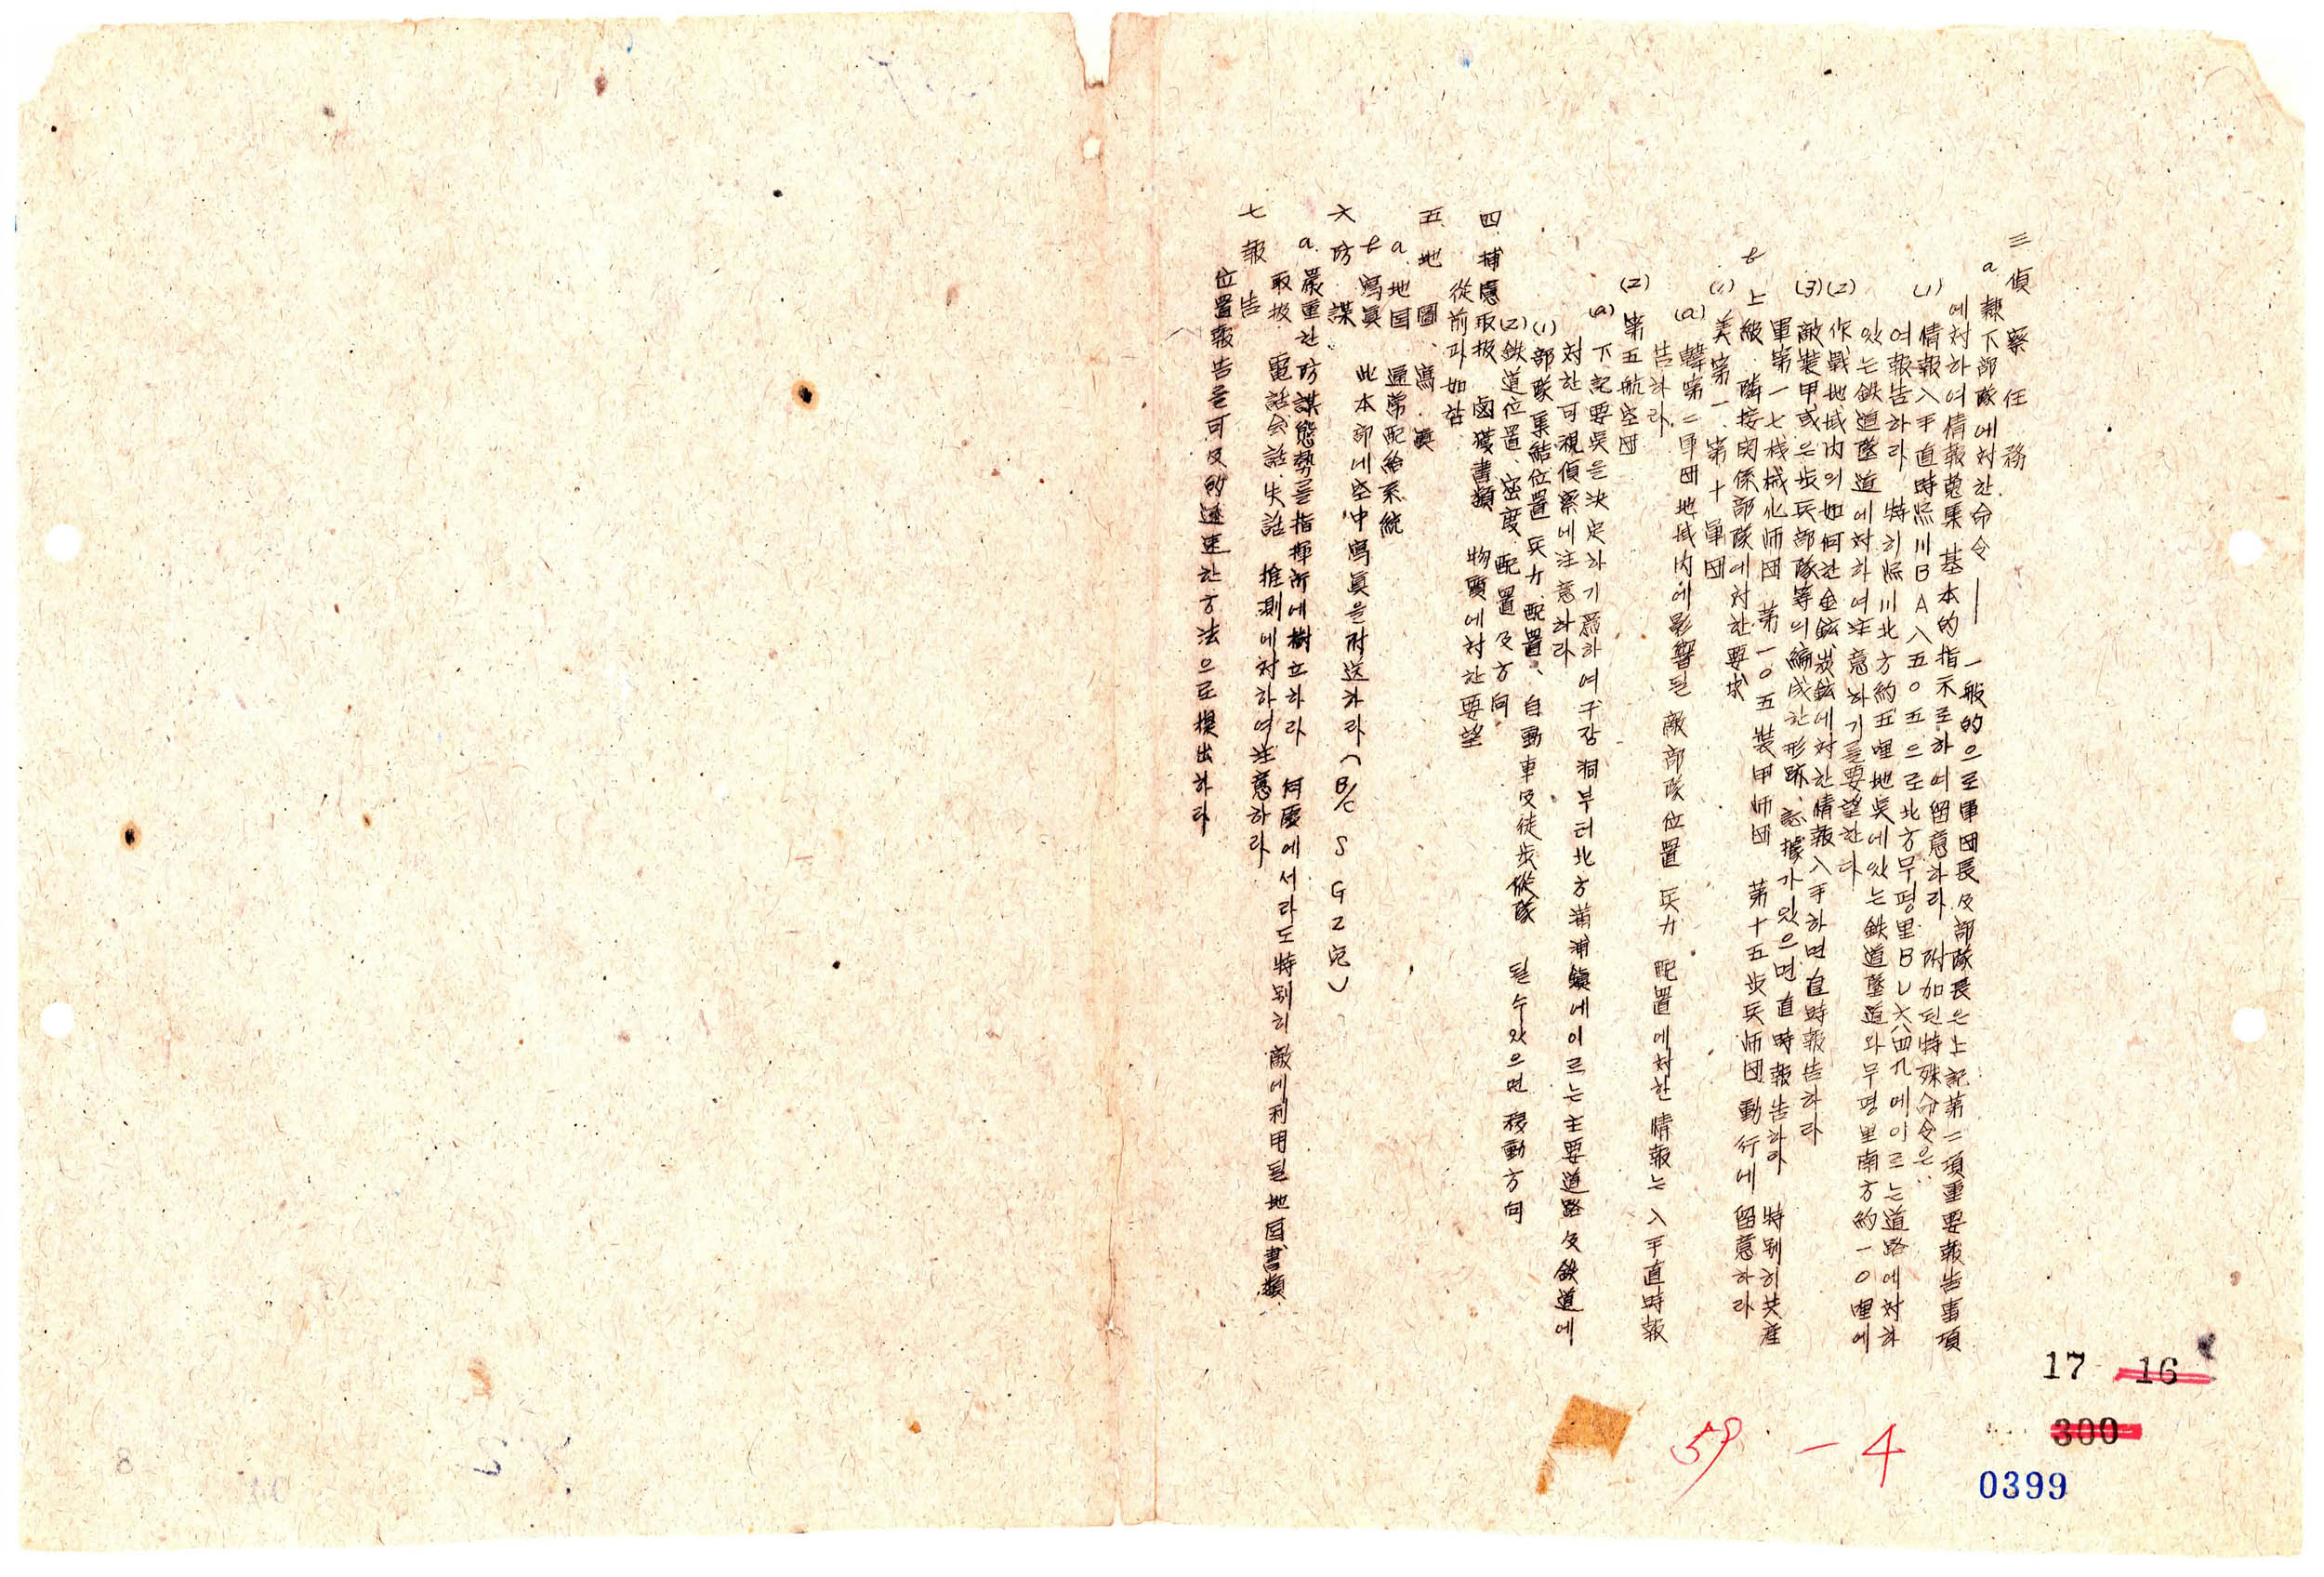 三 偵察任務
a 隷下部隊에対한命令 — 一般的으로軍団長及部隊長은上記第二項重要報告事項
에対하여情報蒐集基本的指示로하여留意하라 附加된特殊命令은:
(1) 情報入手直時熙川BA八五〇五으로北方무평里BL六八四九에이르는道路에対하
여報告하라 特히熙川北方約五哩地奌에있는鉄道墜道와무평里南方約一〇哩에
있는鉄道墜道에対하여注意하기를要望한다
(2) 作戰地域内의如何한金鉱、炭鉱에対한情報入手하면直時報告하라
(3) 敵装甲或은步兵部隊等의編成한形跡、証據가있으면直時報告하라 特別히共産
軍第一七機械化师団 第一〇五装甲师団 第十五步兵师団動行에留意하라
b 上級、隣接関係部隊에対한要求
(1) 美第一、第十軍団
(a) 韓第二軍団地域内에影響될 敵部隊位置 兵力 配置에対한情報는入手直時報
告하라
(2) 第五航空団
(a) 下記要奌을決定하기爲하여구장洞부터北方満浦鎭에이르는主要道路及鉄道에
対한可視偵察에注意하라
(1) 部隊集結位置兵力、配置、自動車及徒步縱隊 될수있으면移動方向
(2) 鉄道位置、密度、配置及方向
四 捕虜取扱 鹵獲書類 物質에対한要望
從前과如홈
五 地圖、寫眞
a 地図 通常配給系統
b 寫眞 此本部에空中寫眞을附送하라(B/C S G2宛)
六 防諜
a. 嚴重한防諜態勢를指揮所에樹立하라 何處에서라도特別히敵에利用될地図書類
取扱 電話会話、失話 推測에対하여注意하라
七 報告
位置報告를可及的迅速한方法으로提出하라
17 16
300
59 - 4
0399